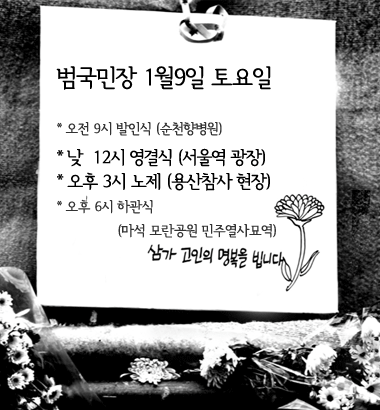 범국민장 1월9일 토요일
* 오전 9시 발인식 (순천향병원)
* 낮 12시 영결식 (서울역 광장)
* 오후 3시 노제 (용산참사 현장)
* 오후 6시 하관식
(마석 모란공원 민주열사묘역)
삼가 고인의 명복을 빕니다